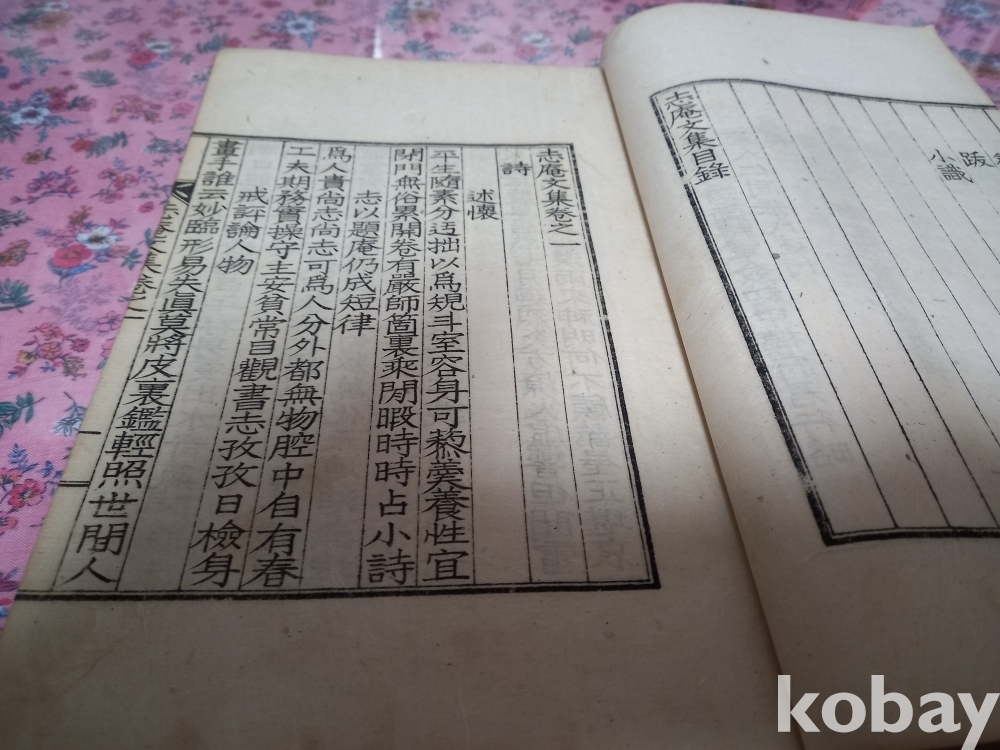 跋
小識
志庵文集目錄
志庵文集卷之一
詩
述懷
平生隨素分迃拙以爲規斗室容身可藜羹養性宜
閉門無俗累開卷有嚴師箇裏乘閒暇時時占小詩
志以題庵仍成短律
爲人貴尚志尚志可爲人分外都無物腔中自有春
工夫期務實操守主安貧常目觀書志孜孜日檢身
戒評論人物
畫手誰云妙臨形易失眞莫將皮裏鑑輕照世間人
志庵文集卷之一
一
kobay